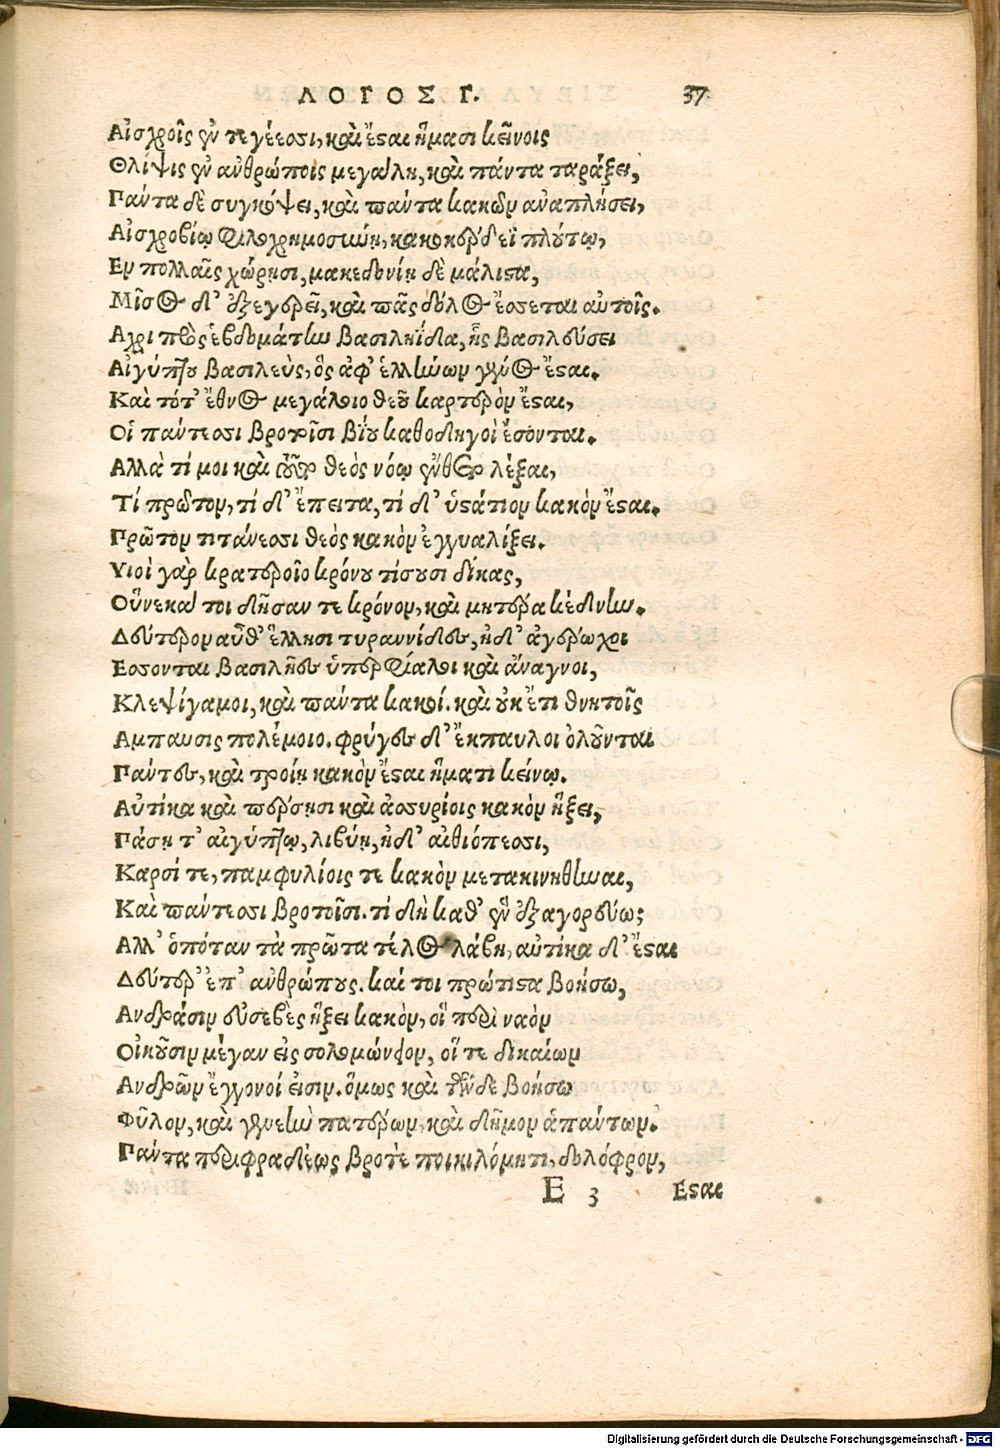 ΛΟΓΟΣ Γ. 37
Αἰσχροῖς ἐν τεγέεσσι, καὶ ἔσαι ἤμασι κείνοις
Θλίψις ἐν ἀνθρώποις μεγάλη, καὶ πάντα ταράξει,
Πάντα δὲ συγκόψει, καὶ πάντα κακῶν ἀναπλήσει,
Αἰσχροβίῳ φιλοχρημοσύνῃ, κακοκερδέϊ πλούτῳ,
Ἐν πολλαῖς χώρῃσι, μακεδονίῃ δὲ μάλιστα,
Μῖσος δ' ἐξεγερεῖ, καὶ πᾶς δόλος ἔσσεται αὐτοῖς.
Αχρι πρὸς ἑβδομάτην βασιληΐδα, ἧς βασιλεύσει
Αἰγύπτου βασιλεὺς, ὃς ἀφ' ἑλλήνων γένος ἔσαι.
Καὶ τότ' ἔθνος μεγάλοιο θεοῦ καρτερὸν ἔσαι,
Οἱ πάντεσσι βροτοῖσι βίου καθοδηγοὶ ἔσονται.
Αλλὰ τί μοι καὶ τοῦτο θεὸς νόῳ ἔνθετο λέξαι,
Τί πρῶτον, τί δ' ἔπειτα, τί δ' ὑστάτιον κακὸν ἔσαι.
Πρῶτον τιτάνεσσι θεὸς κακὸν ἐγγυαλίξει.
Υἱοὶ γὰρ κρατεροῖο κρόνου τίσουσι δίκας,
Οὕνεκά τοι δῆσαν τε κρόνον, καὶ μητέρα κεδνήν.
Δεύτερον αὖθ' ἕλλησι τυραννίδες, ἠδ' ἀγέρωχοι
Εσσονται βασιλῆες ὑπερφίαλοι καὶ ἄναγνοι,
Κλεψίγαμοι, καὶ πάντα κακοί. καὶ οὐκ ἔτι θνητοῖς
Αμπαυσις πολέμοιο. φρύγες δ' ἔκπαυλοι ὀλοῦνται
Πάντες, καὶ τροίῃ κακὸν ἔσαι ἤματι κείνῳ.
Αὐτίκα καὶ πέρσῃσι καὶ ἀσσυρίοις κακὸν ἥξει,
Πάσῃ τ' αἰγύπτῳ, λιβύῃ, ἠδ' αἰθιόπεσσι,
Καρσί τε, παμφυλίοις τε κακὸν μετακινηθῆναι,
Καὶ πάντεσσι βροτοῖσι. τί δὴ καθ' ἓν ἐξαγορεύω;
Αλλ' ὁπόταν τὰ πρῶτα τέλος λάβῃ, αὐτίκα δ' ἔσαι
Δεύτερ' ἐπ' ἀνθρώπους. καί τοι πρώτιστα βοήσω,
Ανδράσιν εὐσεβὲς ἥξει κακὸν, οἳ περὶ ναὸν
Οἰκοῦσιν μέγαν εἰς σολομώνιον, οἵ τε δικαίων
Ανδρῶν ἔγγονοί εἰσιν. ὅμως καὶ τῶνδε βοήσω
Φῦλον, καὶ γενεὴν πατέρων, καὶ δῆμον ἁπάντων.
Πάντα περιφραδέως βροτὲ ποικιλόμητι, δολόφρον,
E 3 Εσαι
Digitalisierung gefördert durch die Deutsche Forschungsgemeinschaft - DFG